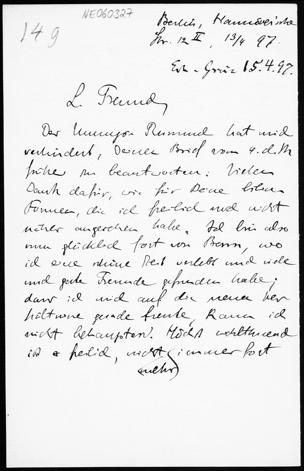 149
NE060327
Berlin, Hannoversche
Str. 12 II, 13/4 97.
15.4.97.
L. Freund,
Der Umzug hat mich
verhindert, Deinen Brief vom 4. d. M.
früher zu beantworten. Vielen
Dank dafür, wie für Deine
Formen, die ich freilich noch nicht
näher angesehen habe. Ich bin also
nun glücklich fort von Bonn, wo
ich eine schöne Zeit verlebt und viele
und gute Freunde gefunden habe;
dass ich mich auf die neuen Ver-
hältnisse gerade freute, kann ich
nicht behaupten.
ist es freilich, nicht immer fort